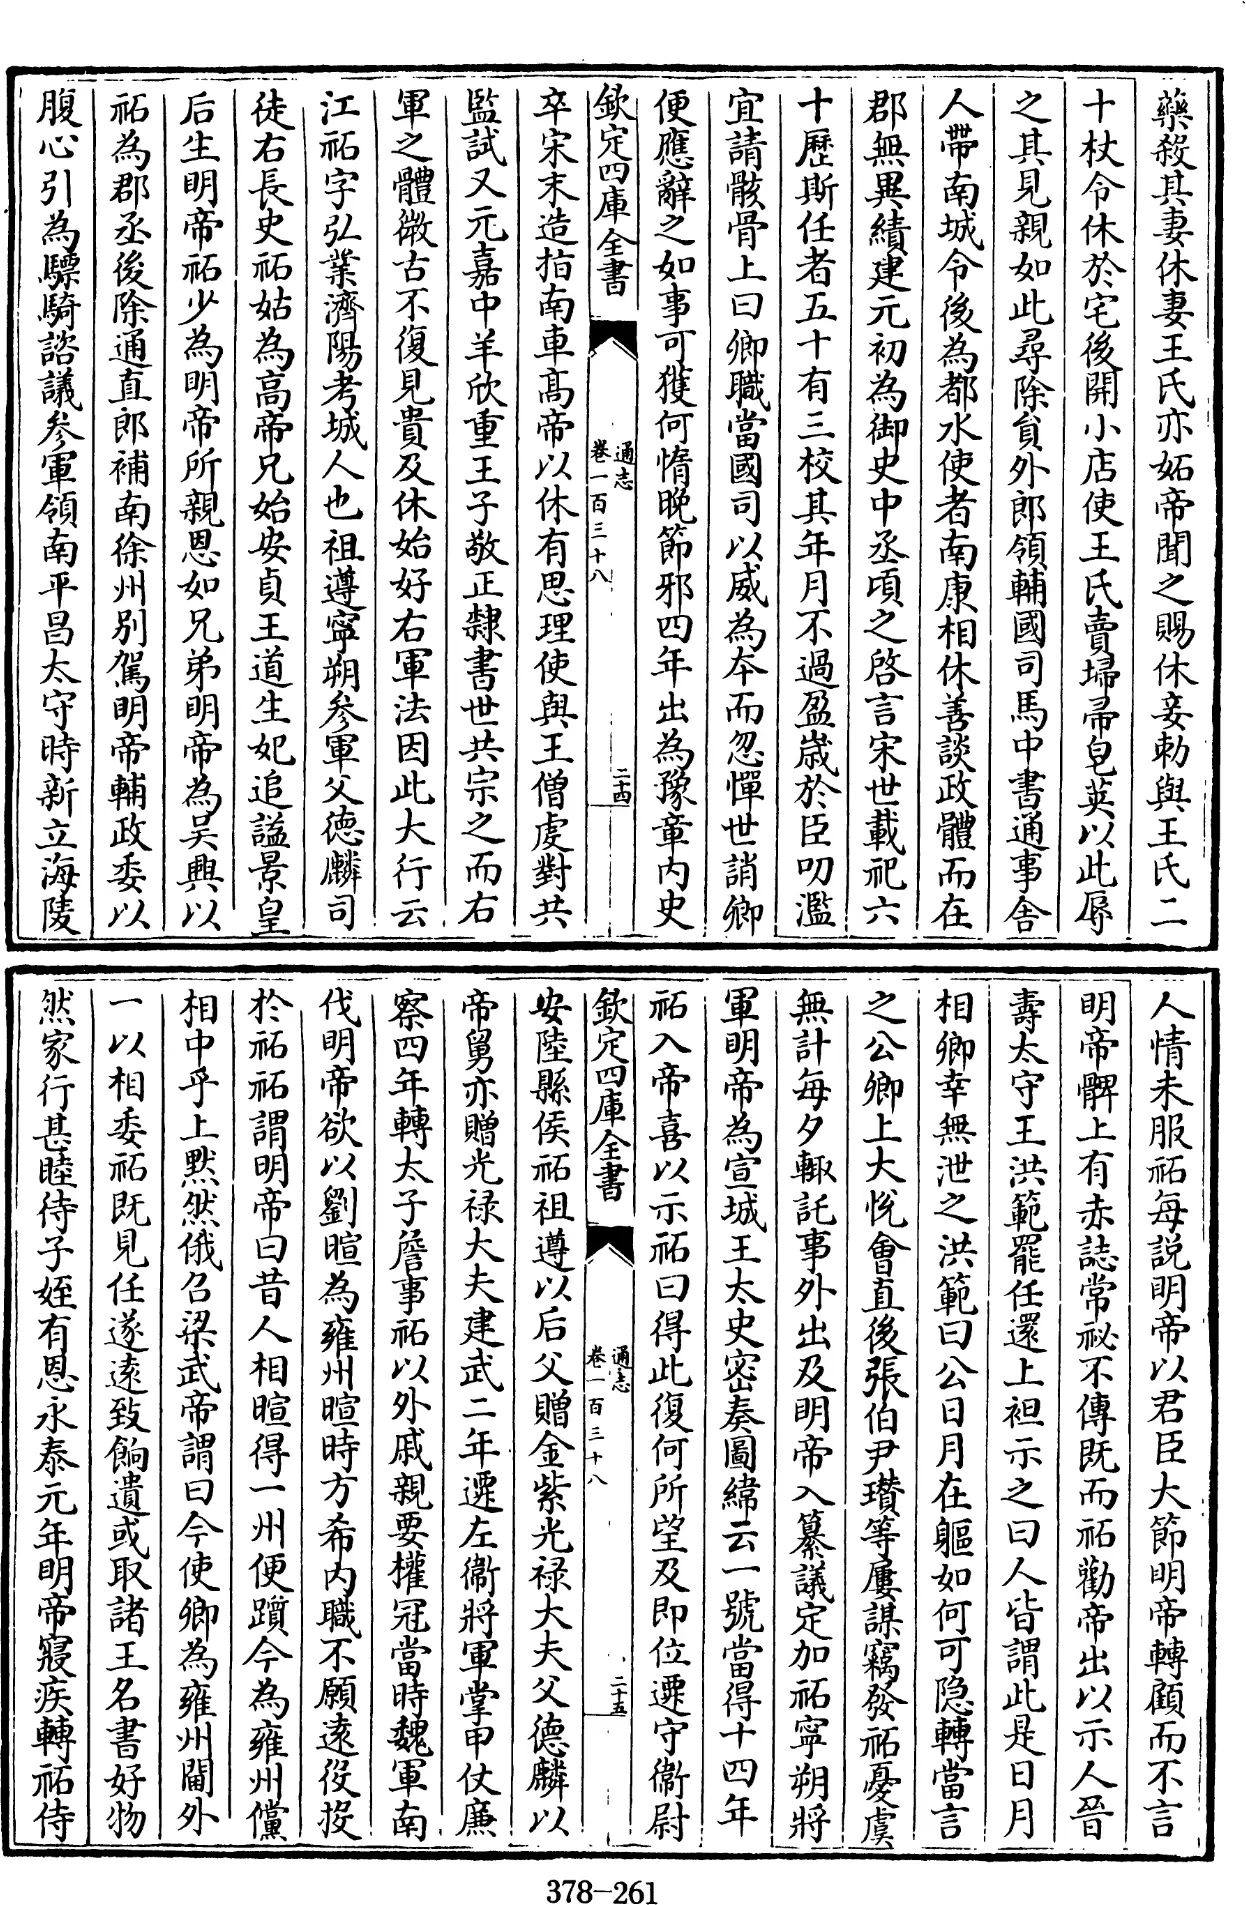 藥殺其妻休妻王氏亦妬帝聞之賜休妾勅與王氏二
十杖令休於宅後開小店使王氏賣埽帚皂莢以此辱
之其見親如此尋除負外郎領輔國司馬中書通事舍
人帶南城令後為都水使者南康相休善談政體而在
郡無異績建元初為御史中丞頃之啓言宋世載祀六
十歷斯任者五十有三校其年月不過盈歲於臣叨濫
宜請骸骨上曰卿職當國司以威為本而忽憚世誚卿
便應辭之如事可獲何惰晚節邪四年出為豫章内史
欽定四庫全書
通志
卷一百三十八
二十四
卒宋末造指南車高帝以休有思理使與王僧虔對共
監試又元嘉中羊欣重王子敬正隸書世共宗之而右
軍之體微古不復見貴及休始好右軍法因此大行云
江祏字弘業濟陽考城人也祖遵寧朔參軍父德麟司
徒右長史祏姑為高帝兄始安貞王道生妃追謚景皇
后生明帝祏少為明帝所親恩如兄弟明帝為吳興以
祏為郡丞後除通直郎補南徐州別駕明帝輔政委以
腹心引為驃騎諮議參軍領南平昌太守時新立海陵
人情未服祏每説明帝以君臣大節明帝轉顧而不言
明帝髀上有赤誌常祕不傳既而祏勸帝出以示人晉
壽太守王洪範罷任還上袒示之曰人皆謂此是日月
相卿幸無泄之洪範曰公日月在軀如何可隐轉當言
之公卿上大悅會直後張伯尹瓚等屢謀竊發祏憂虞
無計每夕輙託事外出及明帝入纂議定加祏寧朔將
軍明帝為宣城王太史密奏圖緯云一號當得十四年
祏入帝喜以示祏曰得此復何所望及即位遷守衞尉
欽定四庫全書
通志
卷一百三十八
二十五
安陸縣侯祏祖遵以后父贈金紫光禄大夫父德麟以
帝舅亦贈光禄大夫建武二年遷左衞將軍掌甲仗廉
察四年轉太子詹事祏以外戚親要權冠當時魏軍南
伐明帝欲以劉暄為雍州暄時方希内職不願遠役投
於祏祏謂明帝曰昔人相暄得一州便躓今為雍州儻
相中乎上默然俄召梁武帝謂曰今使卿為雍州閫外
一以相委祏既見任遂遠致餉遺或取諸王名書好物
然家行甚睦待子姪有恩永泰元年明帝寢疾轉祏侍
378-261